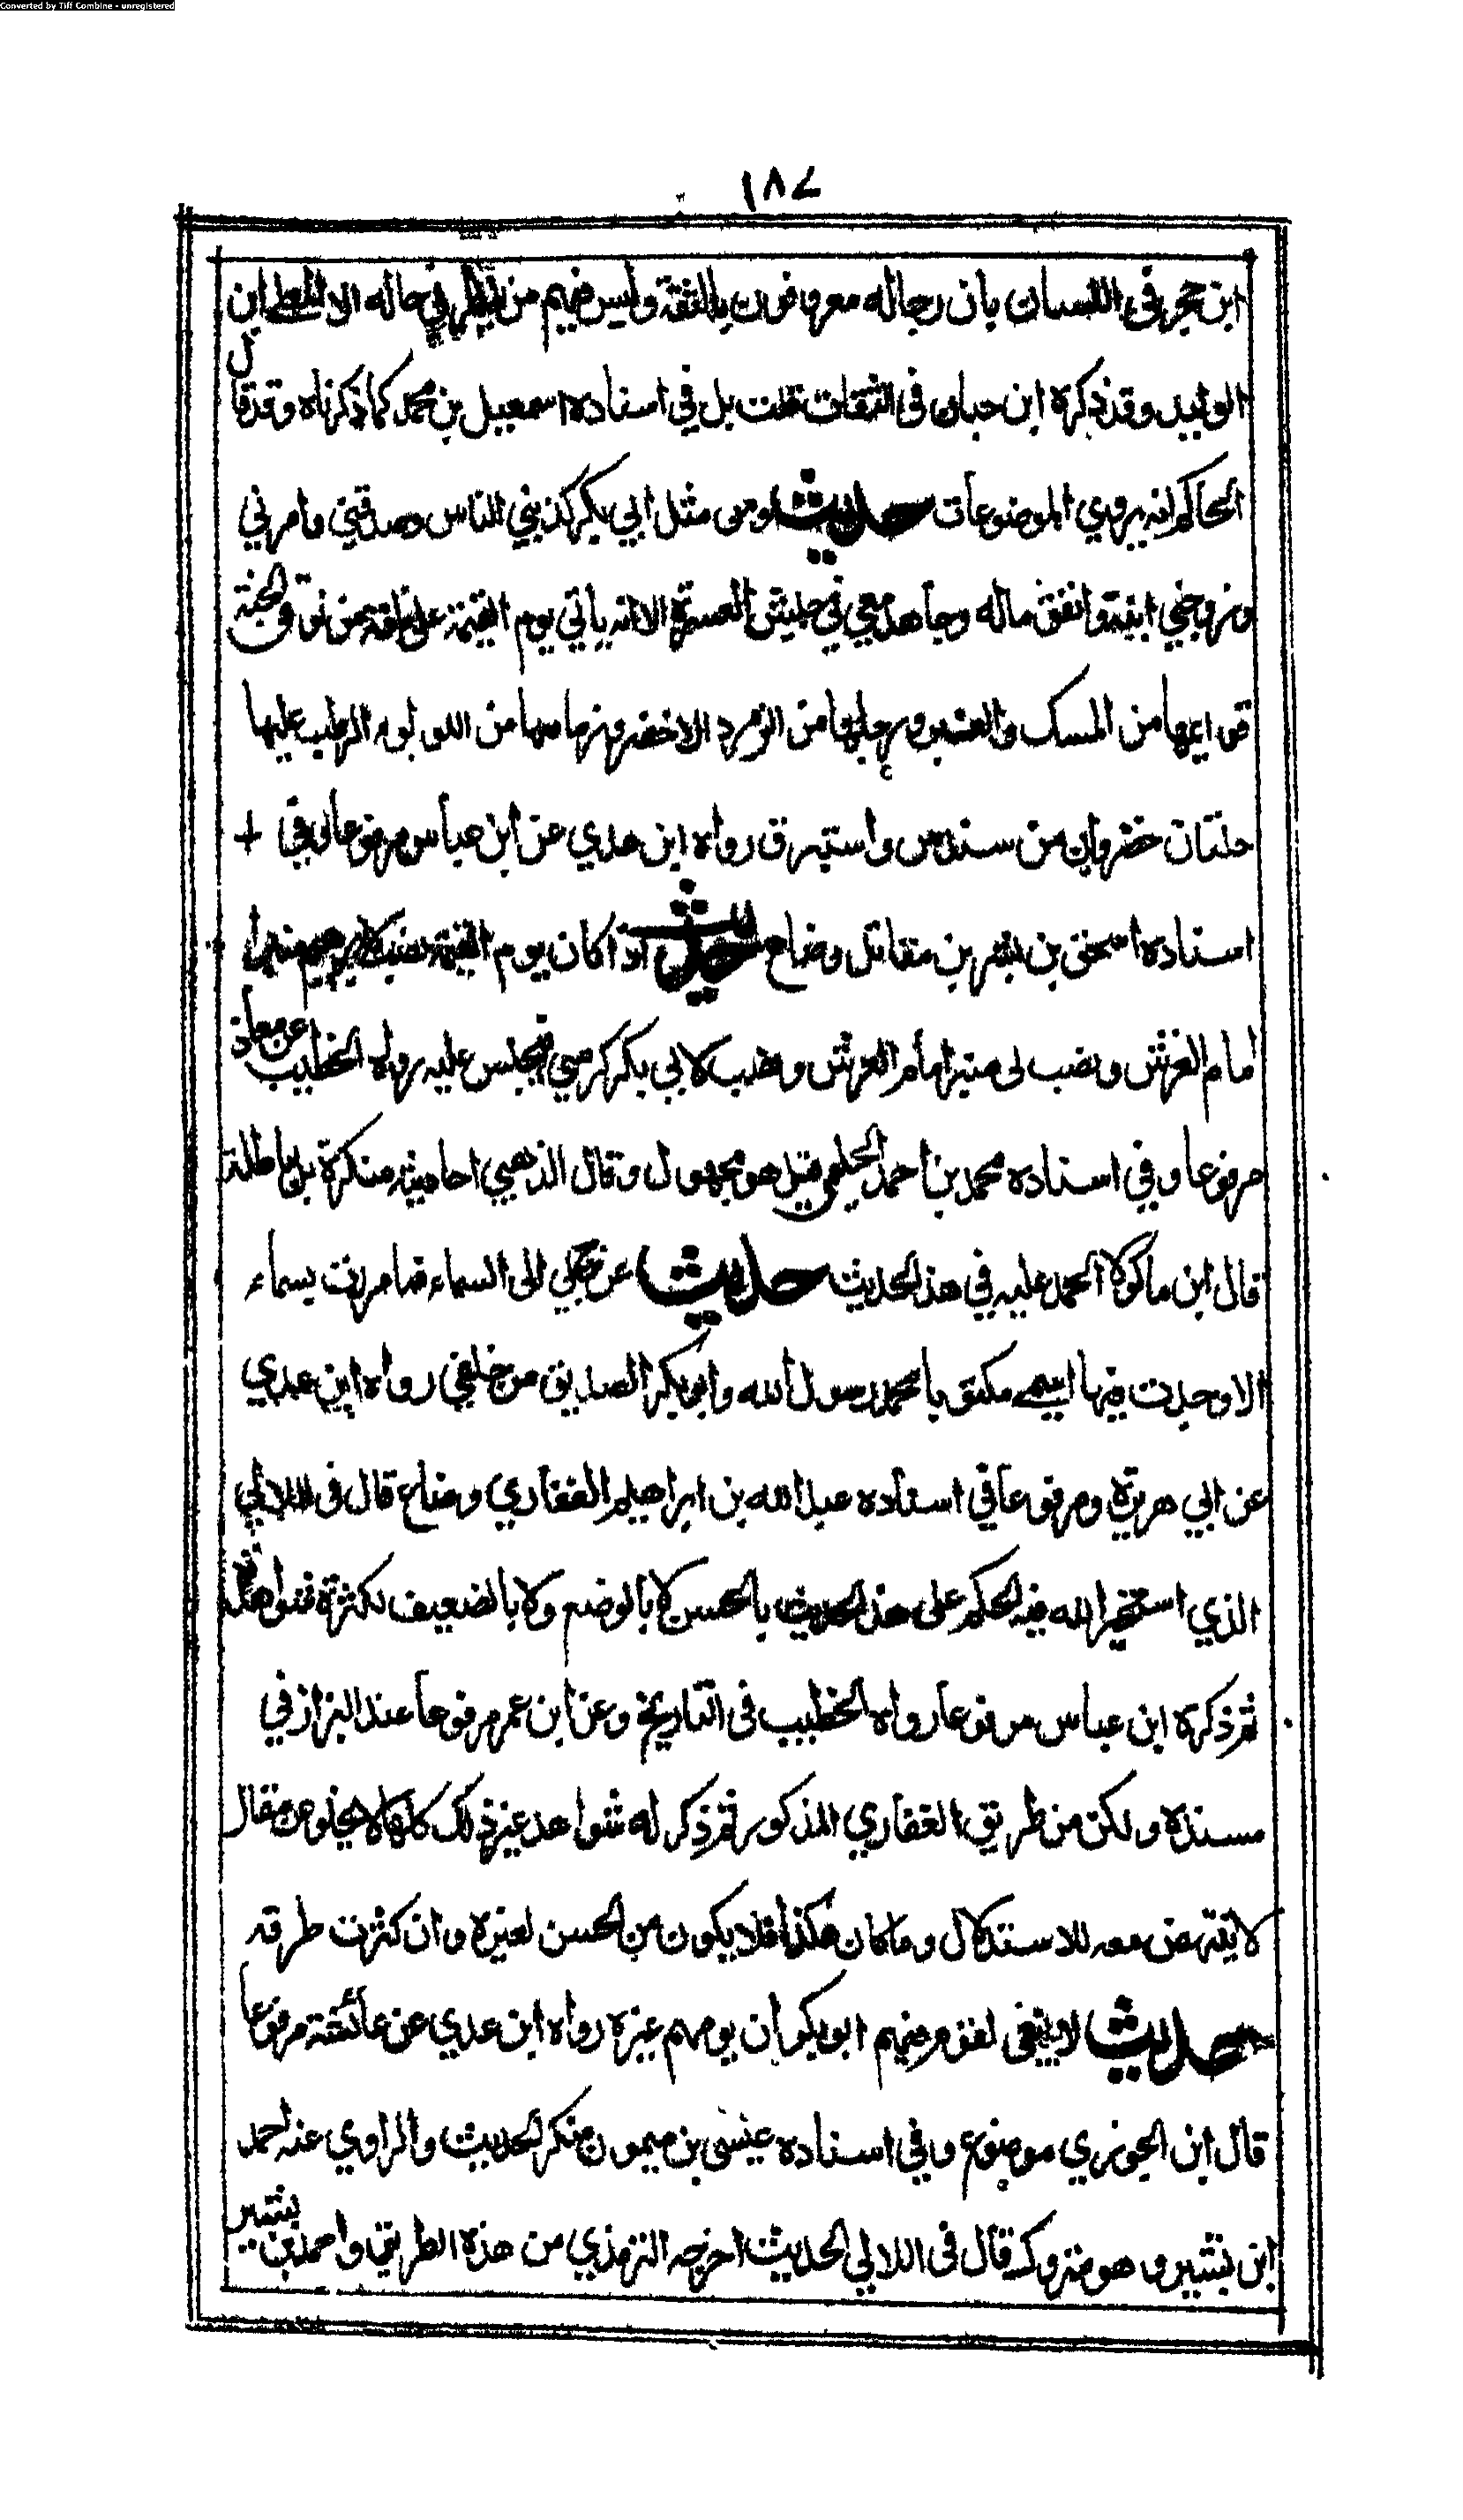 Converted by Tiff Combine - unregistered
١٨٧
ابن حجر في اللسان بان رجاله معروفون بالثقة وليس فيهم من ينظر في حاله الا المعلى بن
الوليد وقد ذكره ابن حبان في الثقات قلت بل في اسناده اسمعيل بن محمد كما ذكرناه وقد قال
الحاكم انه يروي الموضوعات حديث ومن مثل ابي بكر كذبني الناس وصدقني وامرني
وزوجني ابنته وانفق ماله وجاهد معي في جيش العسرة الا انه ياتي يوم القيمة على ناقة من نوق الجنة
قوايمها من المسك والعنبر ورجلها من الزمرد الاخضر وزمامها من اللولوء الرطب عليها
حلتان خضروان من سندس واستبرق رواه ابن عدي عن ابن عباس مرفوعا وفي
اسناده اسحق بن بشر بن مقاتل وضاع حديث اذا كان يوم القيمة نصب لابرهيم منبرا
امام العرش ونصب لى منبرا امام العرش ونصب لابي بكر كرسي فيجلس عليه رواه الخطيب عن معاذ
مرفوعا وفي اسناده محمد بن احمد الحليمي قيل هو مجهول وقال الذهبي احاديثه منكرة بل باطلة
قال ابن ماكولا الحمد عليه في هذ الحديث حديث عرج بي الى السماء فما مررت بسماء
الا وجدت فيها اسمي مكتوبا محمد رسول الله وابو بكر الصديق من خلفي رواه ابن عدي
عن ابي هريرة ومرفوعا في اسناده عبد الله بن ابراهيم الغفاري وضاع قال في اللالي
الذي استخير الله فيه الحكم على هذ الحديث بالحسن لا بالوضع ولا بالضعيف لكثرة شواهده
ثم ذكره ابن عباس مرفوعا رواه الخطيب في التاريخ وعن ابن عمر مرفوعا عند البزاز في
مسنده ولكن من طريق الغفاري المذكور ثم ذكر له شواهد غير ذلك كلها لا يخلو من مقال
لا ينتهض معه للاستدلال وما كان هكذا فلا يكون من الحسن لغيره وان كثرت طرقه
حديث لا ينبغي لقوم فيهم ابو بكر ان يومهم غيره رواه ابن عدي عن عائشة مرفوعا
قال ابن الجوزي موضوع وفي اسناده عيسى بن ميمون منكر الحديث والراوي عنه احمد
ابن بشير وهو متروك قال في اللالي الحديث اخرجه الترمذي من هذه الطريق واحمد بن بشير